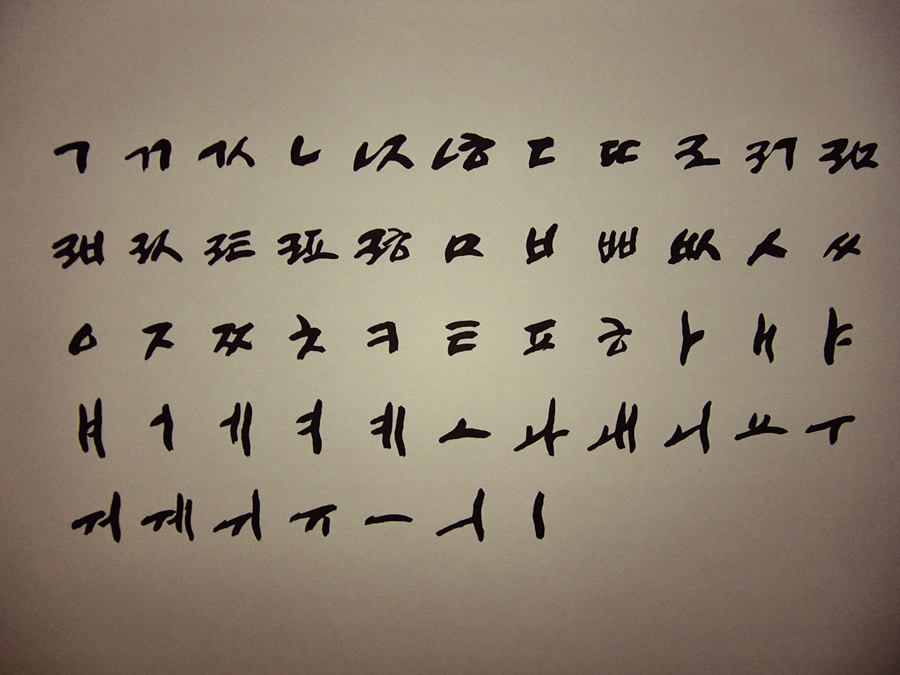 ㄱ ㄲ ㄳ ㄴ ㄵ ㄶ ㄷ ㄸ ㄹ ㄺ ㄻ
ㄼ ㄽ ㄾ ㄿ ㅀ ㅁ ㅂ ㅃ ㅄ ㅅ ㅆ
ㅇ ㅈ ㅉ ㅊ ㅋ ㅌ ㅍ ㅎ ㅏ ㅐ ㅑ
ㅒ ㅓ ㅔ ㅕ ㅖ ㅗ ㅘ ㅙ ㅚ ㅛ ㅜ
ㅝ ㅞ ㅟ ㅠ ㅡ ㅢ ㅣ